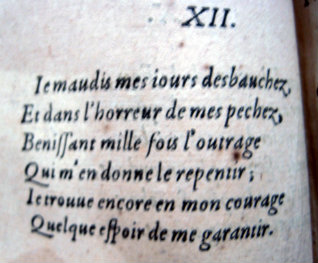 XII.
Ie maudis mes iours desbauchez,
Et dans l'horreur de mes pechez,
Beniſſant mille fois l'outrage
Qui m'en donne le repentir;
Ie trouue encore en mon courage
Quelque eſpoir de me garantir.